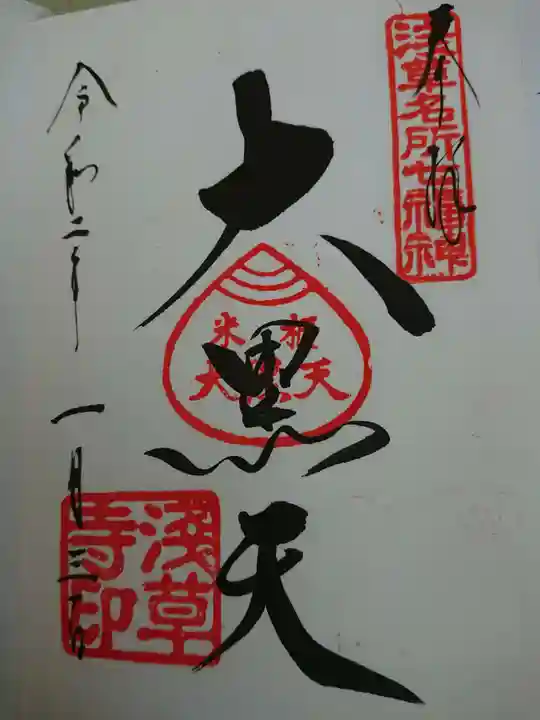 奉拝
浅草名所七福神
大黒天
米板
大黒天
令和二年一月三日
浅草
寺印